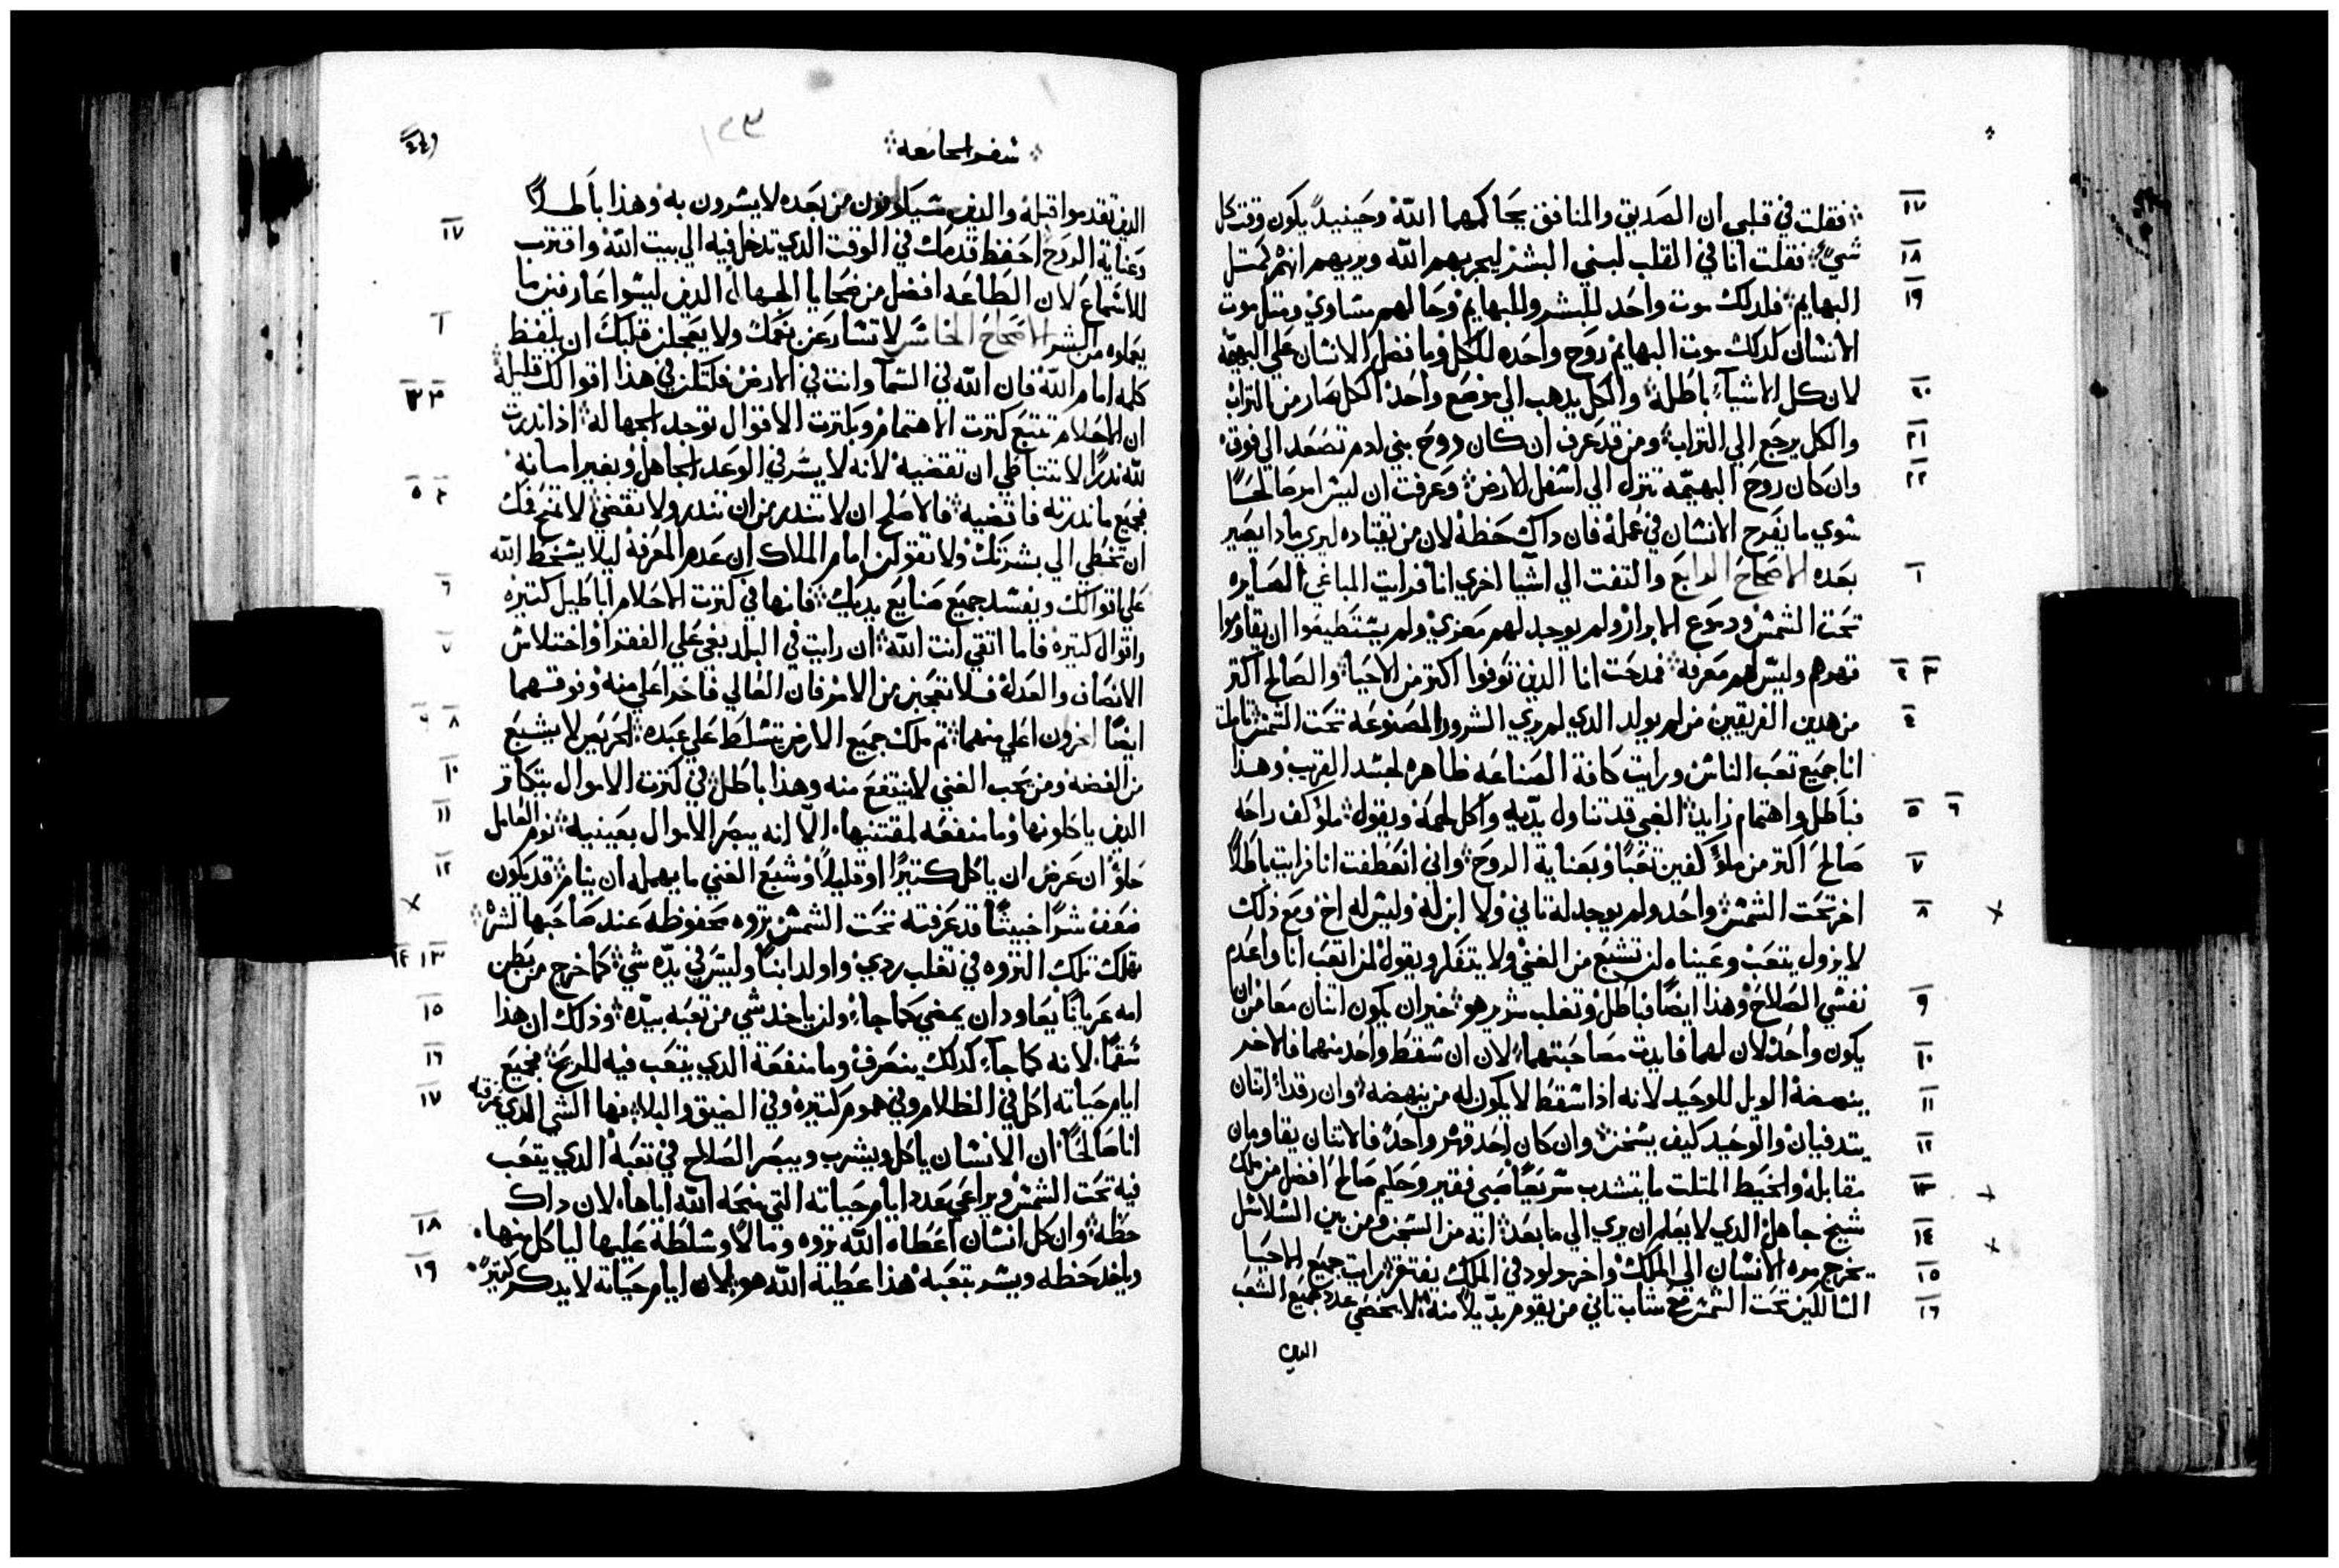 ١٧ فقلت في قلبي ان الصديق والمنافق يحاكمهما الله وحينيدٍ يكون وقت كل
١٨ شيءٍ فقلت انا في القلب لبني البشر ليجربهم الله ويريهم انهم كمتل
١٩ البهايم فلدلك موت واحد للبشر وللبهايم وحالهم متساوي ومتل موت
الانسان كدلك موت البهايم روح واحده للكل وما فضل الانسان علي البهيمة
٢٠ لان كل الاشيآء باطلة والكل يدهب الي موضع واحد الكل صار من التراب
٢١ والكل يرجع الي التراب ومن قد عرف ان كان روح بني ادم تصعد الي فوق
٢٢ وان كان روح البهيمة تنزل الي اسفل الارض وعرفت ان ليس امر صالحًا
سوي ما يفرح الانسان في عمله فان داك حظة لان من يقتاده ليري مادا يصير
١ بعده الاصحاح الرابع والتفت الي اشيا اخري انا فرايت الباغي الصايره
تحت الشمس ودموع الابرار ولم يوجد لهم معزي ولم يستطيعوا ان يقاوموا
٢ ٣ قهرهم وليس لهم معرفة فمدحت انا الدين توفوا اكتر من الاحيا والصالح اكتر
٤ من هدين الفريقين من لم يولد الدي لم يري الشرور المصنوعة تحت الشمس تاملت
انا جميع تعب الناس ورايت كافة الصناعه ظاهره لحسد القريب وهدا
٥ ٦ فباطل واهتمام زايد الغبي قد تناول يديه واكل لحمة ويقول ملو كف راحه
٧ صالح اكتر من ملؤ كفين تعبًا وبعناية الروح واني انعطفت انا فرايت باطلًا
٨ اخر تحت الشمس واحد ولم يوجد له تاني ولا ابن له وليس له اخ ومع دلك
لا يزول يتعب وعيناه لن تشبع من الغني ولا يتفكر ويقول لمن اتعب انا واعدم
٩ نفسي الصلاح وهدا ايضًا فباطل وتعلب شرير هو خير ان يكون اتنان معا من ان
١٠ يكون واحد لان لهما فايدت مصاحبتهما لان ان سقط واحد منهما فالاخر
١١ ينهضة الويل للوحيد لانه ادا سقط لا يكون له من ينهضه وان رقدا اتنان
١٢ يتدفيان والوحيد كيف يسخن وان كان احد قهر واحد فالاتنان يقاومان
١٣ مقابله والخيط المتلت ما يتشدب سريعًا صبي فقير وحكيم صالح افضل من ملك
١٤ شيخ جاهل الدي لا يعلم ان يري الي ما بعد انه من السجن ومن بين السلاسل
١٥ يخرج مره الانسان الي الملك واخر مولود في الملك يفتقر رايت جميع الاحيا
١٦ السالكين تحت الشمس مع شاب تاني من يقوم بديلًا منه لا يحصي عدد جميع الشعب
الدين
سفر الجامعة
١٢٣
الدين تقدموا قبله والدين سياتون من بعده لا يسرون به وهدا باطلًا
١٧ وعناية الروح احفظ قدمك في الوقت الدي تدخل فيه الي بيت الله واقترب
للاستماع لان الطاعه افضل من ضحايا الجهال الدين ليسوا عارفين ما
١ يعملوه من الشر الاصحاح الخامس لا تسارع عن فمك ولا يعجلن قلبك ان يلفظ
كلمه امام الله فان الله في السمآ وانت في الارض فلتكن في هدا اقوالك قليلة
٢ ٣ ان الاحلام تتبع كترت الاهتمام وبكترت الاقوال توجد الجهالة ادا ندرت
لله ندرًا لا تتباطي ان تقضية لانه لا يسر في الوعد الجاهل وبغير امانة
٤ ٥ فجميع ما ندرته فاقضيه فالاصلح ان لا تندر من ان تندر ولا تقضي لا تمنح فمك
ان تخطي الي بشرتك ولا تقولن امام الملاك ان عدم المعرفة ليلا يسخط الله
٦ علي اقوالك ويفسد جميع صنايع يديك فانها في كترت الاحلام اباطيل كتيره
٧ واقوال كتيرة فاما اتقي انت الله ان رايت في البلد بغي علي الفقرا واختلاس
الانصاف والعدلة فلا تعجبن من الامر فان العالي فاخر اعلي منه وفوقهما
٨ ٩ ايضًا اخرون اعلي منهما تم ملك جميع الارض يتسلط علي عبده الحريص لا يشبع
١٠ من الفضه ومن يحب الغني لا ينتفع منه وهدا باطل في كترت الاموال يتكاتر
١١ الدين ياكلونها وما منفعه لمقتنيها الّا انه يبصر الاموال بعينية نوم العامل
١٢ حلو ان عرض ان ياكل كتيرًا او قليلًا وشبع الغني ما يمهله ان ينام قد يكون
ضعف شرًا خبيتًا قد عرفته تحت الشمس تروه محفوظة عند صاحبها لشرٍ
١٣ ١٤ تهلك تلك التروه في تعلب ردي واولد ابنًا وليس في يده شي كما خرج من بطن
١٥ امه عريانًا يعاود ان يمضي كما جاء ولن ياخد شي من تعبه بيده ودلك ان هدا
١٦ سقمًا لانه كما جآء كدلك ينصرف وما منفعة الدي يتعب فيه للريح فجميع
١٧ ايام حياته اكل في الظلام وفي هموم كتيره وفي الضيق والبلا فهدا الشي الدي عرفته
انا صالحًا ان الانسان ياكل ويشرب ويبصر الصلاح في تعبة الدي يتعب
فيه تحت الشمس ويراعي عدد ايام حياته التي منحه الله اياها لان داك
١٨ حظة وان كل انسان اعطاه الله تروه ومالًا وسلطة عليها لياكل منها
١٩ وياخد حظه ويسر بتعبة هدا عطية الله هو لان ايام حياتة لا يدكر كتيرًا